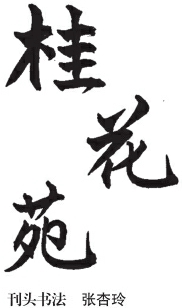 桂
花
苑
刊头书法 张杏玲